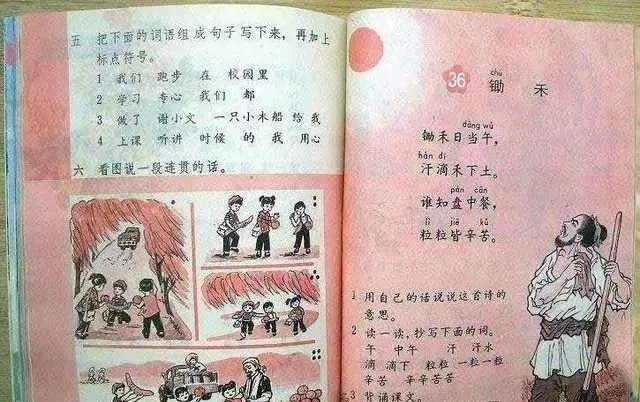 五 把下面的词语组成句子写下来，再加上
标点符号。
1 我们 跑步 在 校园里
2 学习 专心 我们 都
3 做了 谢小文 一只小木船 给我
4 上课 听讲 时候 的 我 用心
六 看图说一段连贯的话。
36 chú
锄 禾
dāng wǔ
锄禾日当午，
hàn dī
汗滴禾下土。
pán cān
谁知盘中餐，
lì jiē kǔ
粒粒皆辛苦。
1 用自己的话说说这首诗的
意思。
2 读一读，抄写下面的词。
午 中午 汗 汗水
滴 滴下 粒粒 一粒一粒
辛苦 辛辛苦苦
3 背诵课文。